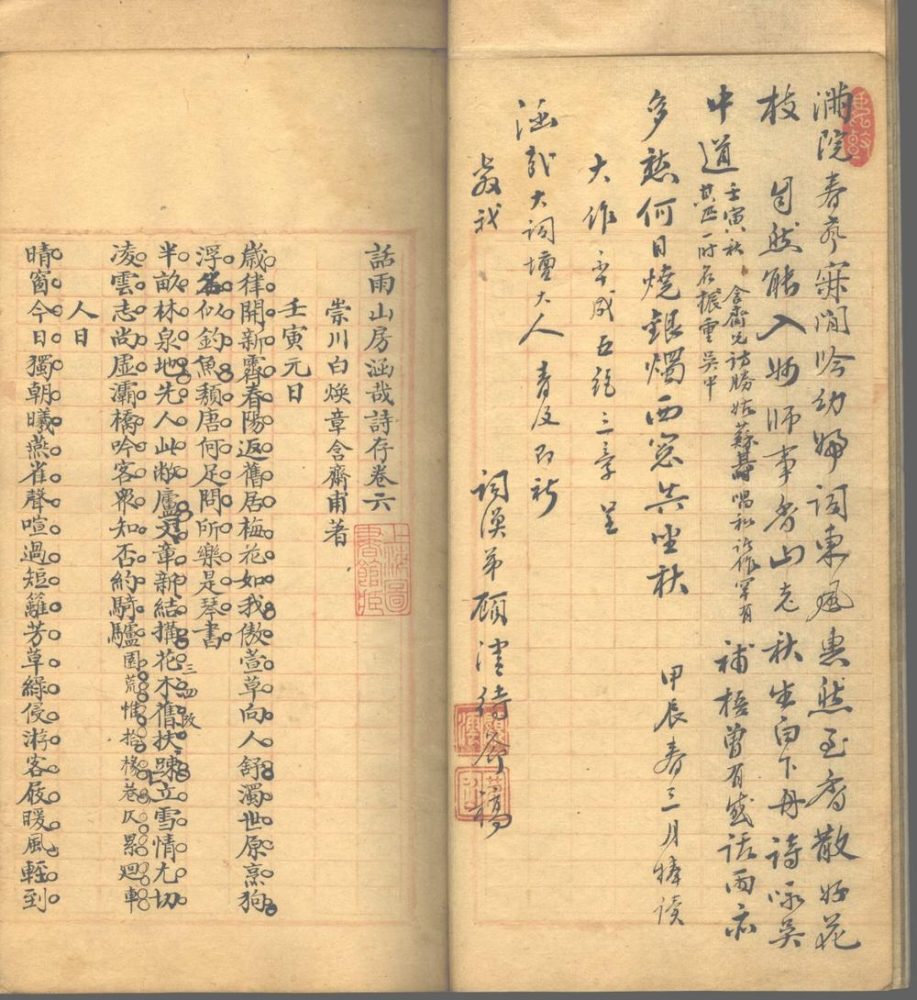 滿院春岑寂閒吟幼婦詞東風惠然至香散好花
枝 自然能入妙師事香山老秋生白下舟詩詠吳
中道 壬寅秋含齋兄詩勝姑蘇唱和諸作罕有
其匹一時名振重吳中
補梧曾有感話雨亦
多愁何日燒銀燭西窓共坐秋 甲辰春三月捧讀
大作率成五絕三章呈
涵哉大詞壇大人青及即祈
教我 詞漢弟顧稿
話雨山房涵哉詩存卷六
上海圖書館藏
崇川白煥章含齋甫著
壬寅元日
歲律開新霽春陽返舊居梅花如我傲萱草向人舒濁世原烹狗
浮名似釣魚頹唐何足問所樂是琴書
半畝林泉地先人此敝廬又章新結搆花木舊扶踈立雪情尤切
三四改
凌雲志尚虛灞橋吟客衆知否約騎驢 園荒惟拾橡巷仄累迴車
人日
晴窗今日獨朝曦燕雀聲喧過短籬芳草綠侵游客屐暖風輕到